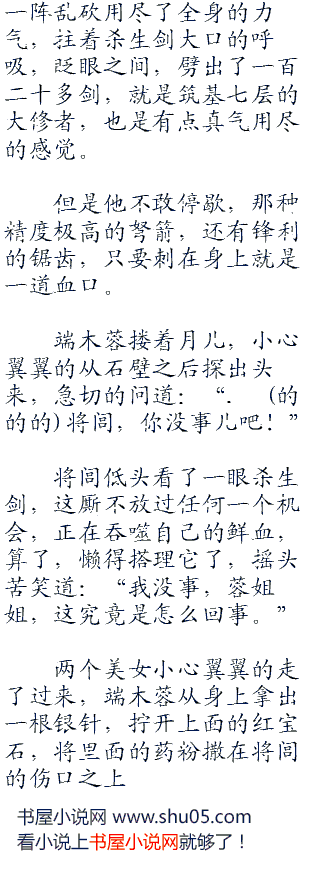 一阵乱砍用尽了全身的力
气，拄着杀生剑大口的呼
吸，眨眼之间，劈出了一百
二十多剑，就是筑基七层的
大修者，也是有点真气用尽
的感觉。
但是他不敢停歇，那种
精度极高的弩箭，还有锋利
的锯齿，只要刺在身上就是
一道血口。
端木蓉搂着月儿，小心
翼翼的从石壁之后探出头
来，急切的问道：“. (的
的的)将闾，你没事儿吧！”
将闾低头看了一眼杀生
剑，这厮不放过任何一个机
会，正在吞噬自己的鲜血，
算了，懒得搭理它了，摇头
苦笑道：“我没事，蓉姐
姐，这究竟是怎么回事。”
两个美女小心翼翼的走
了过来，端木蓉从身上拿出
一根银针，拧开上面的红宝
石，将里面的药粉撒在将闾
的伤口之上
书屋小说网 www.shu05.com
看小说上书屋小说网就够了！